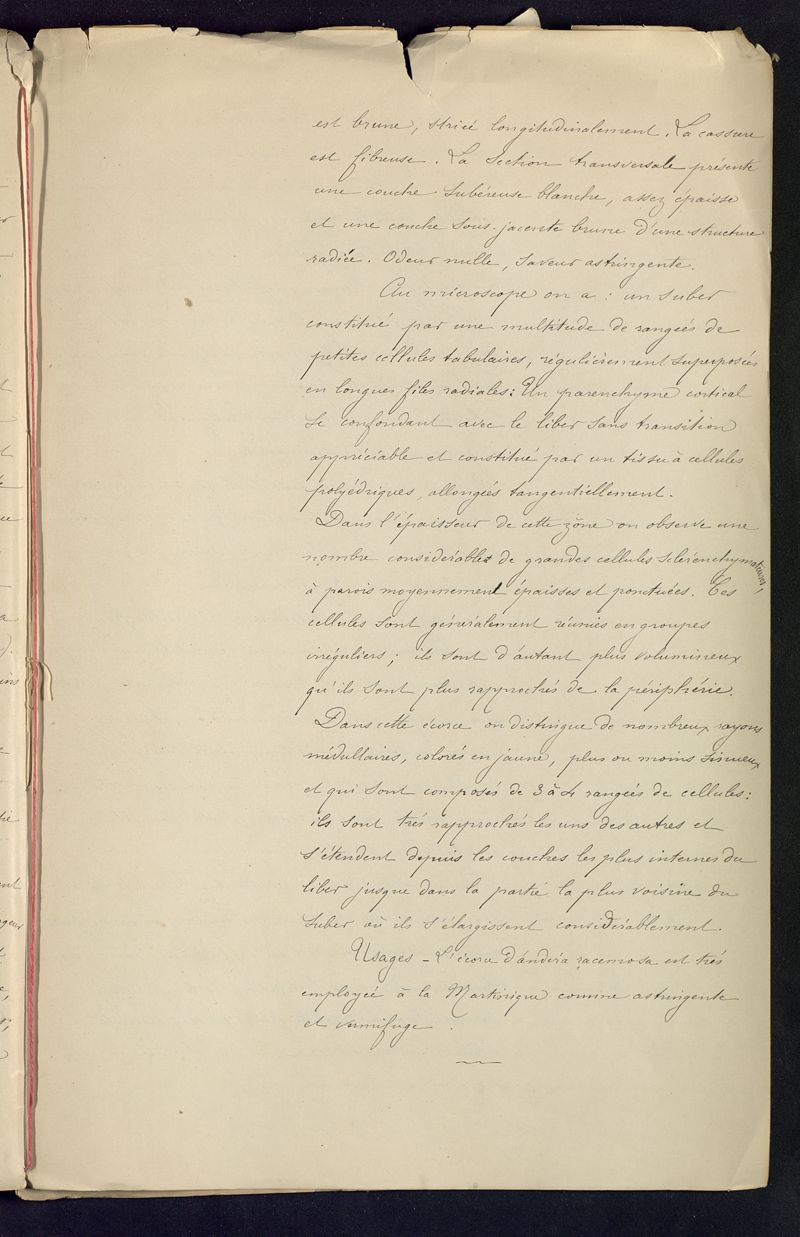 est brune, striée longitudinalement. La cassure
est fibreuse. La Section transversale présente
une couche Subéreuse blanche, assez épaisse
et une couche sous-jacente brune d'une structure
radiée. Odeur nulle, Saveur astringente.
Au microscope on a : un Suber
constitué par une multitude de rangées de
petites cellules tabulaires, régulièrement superposées
en longues files radiales : Un parenchyme cortical
se confondant avec le liber sans transition
appréciable et constitué par un tissu à cellules
polyédriques, allongées tangentiellement.
Dans l'épaisseur de cette zône on observe une
nombre considérable de grandes cellules Sclérenchymateuses,
à parois moyennement épaisses et ponctuées. Ces
cellules sont généralement réunies en groupes
irréguliers ; ils sont d'autant plus volumineux
qu'ils sont plus rapprochés de la périphérie.
Dans cette écorce on distingue de nombreux rayons
médullaires, colorés en jaune, plus ou moins sinueux
et qui sont composés de 3 à 4 rangées de cellules :
ils sont très rapprochés les uns des autres et
s'étendent depuis les couches les plus internes du
liber jusque dans la partie la plus voisine du
Suber où ils s'élargissent considérablement.
Usages - L'écorce d'andira racemosa est très
employée à la Martinique comme astringente
et vermifuge.